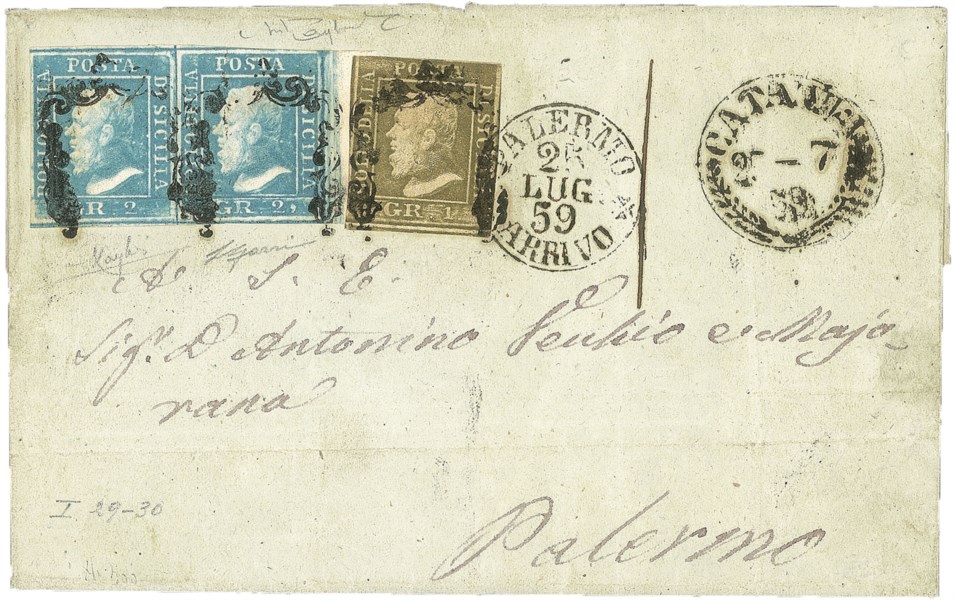 POSTA
BOLLO DELLA
DI SICILIA
GR. 2,
POSTA
BOLLO DELLA
DI SICILIA
GR. 2,
POSTA
BOLLO DELLA
DI SICILIA
GR. 1
PALERMO
25
LUG
59
ARRIVO
CATANIA
7
59
A S. E.
Sig.r D Antonino
e Maja-
rana
Palermo
I 29-30